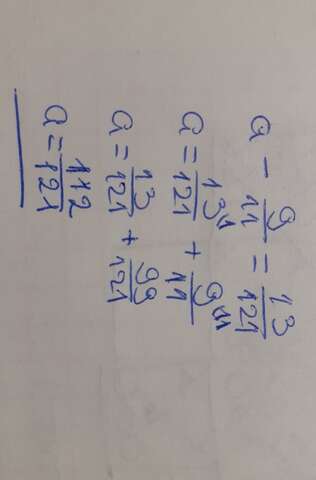 a - 9/11 = 13/121
a = 13\1/121 + 9\11/11
a = 13/121 + 99/121
a = 112/121